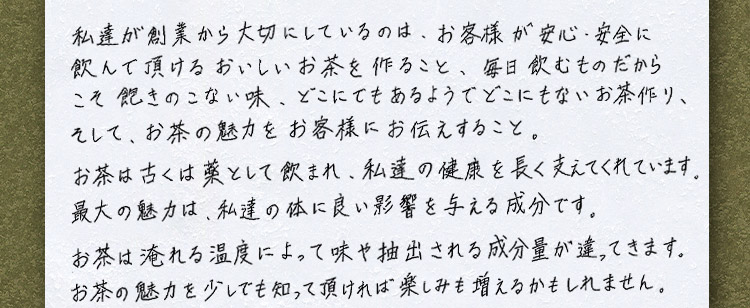 私達が創業から大切にしているのは、お客様が安心・安全に
飲んで頂けるおいしいお茶を作ること、毎日飲むものだから
こそ飽きのこない味、どこにでもあるようでどこにもないお茶作り、
そして、お茶の魅力をお客様にお伝えすること。
お茶は古くは薬として飲まれ、私達の健康を長く支えてくれています。
最大の魅力は、私達の体に良い影響を与える成分です。
お茶は淹れる温度によって味や抽出される成分量が違ってきます。
お茶の魅力を少しでも知って頂ければ楽しみも増えるかもしれません。